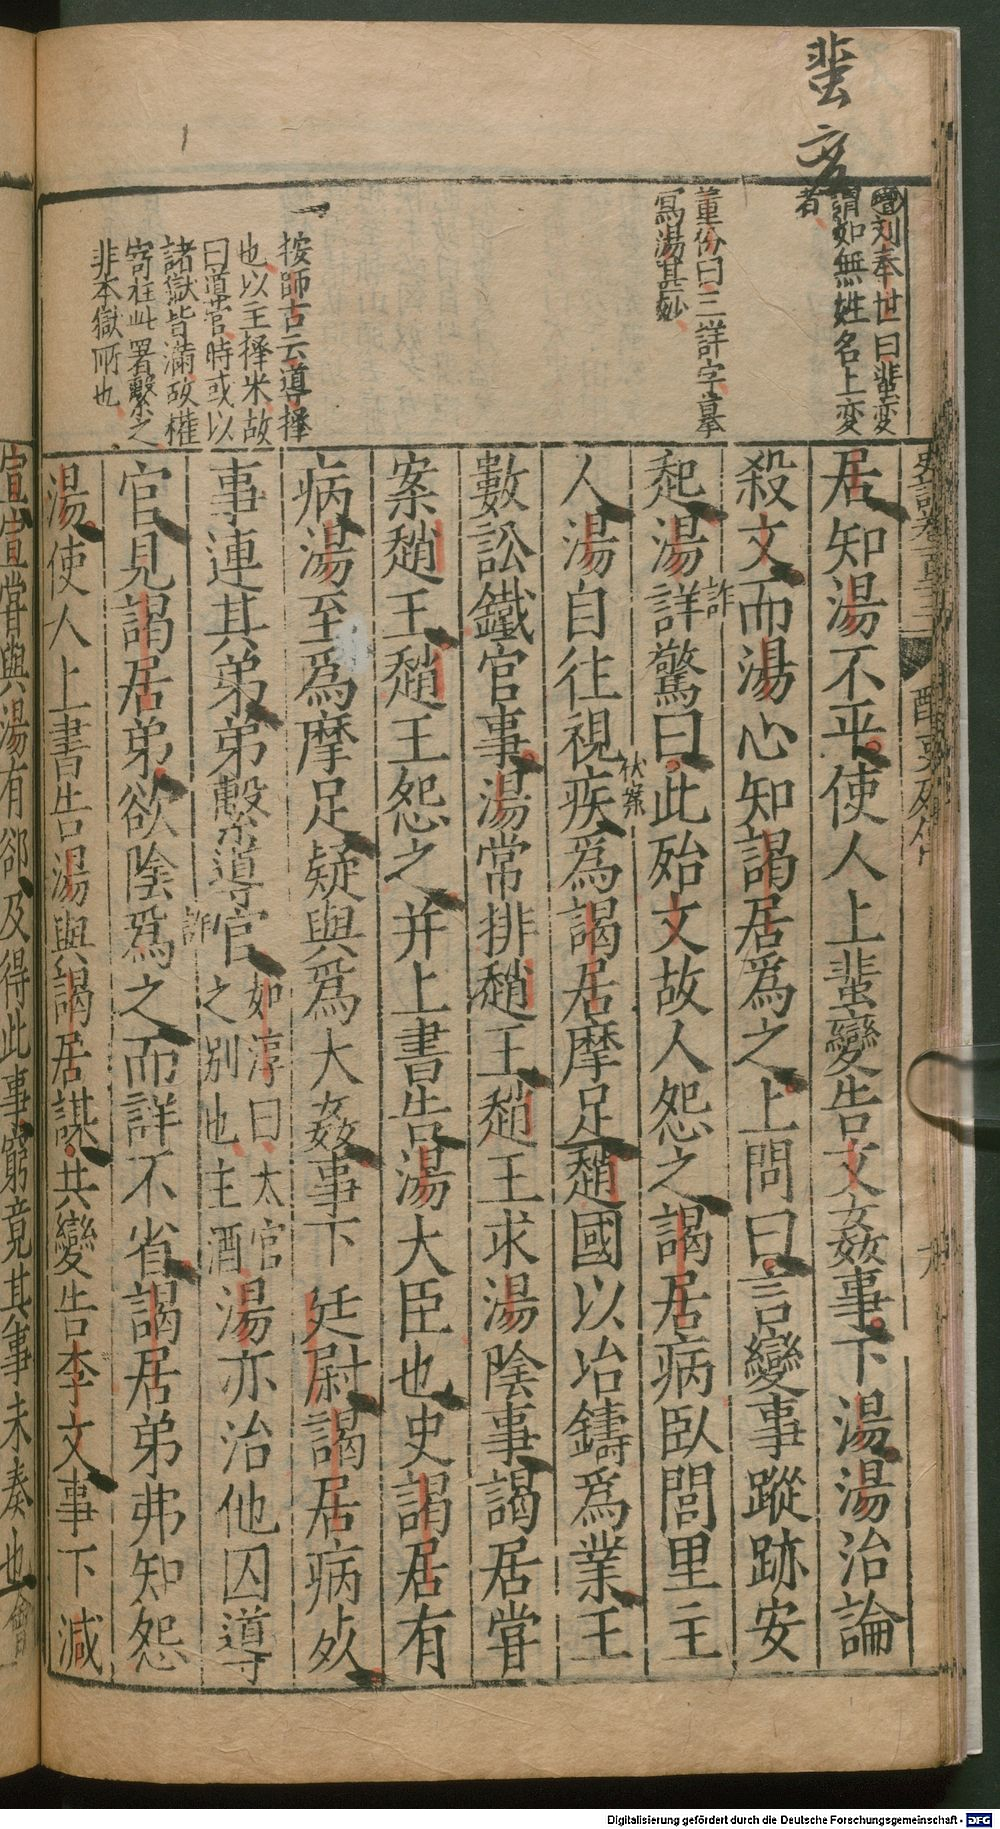 蜚変
劉奉世曰蜚変
謂如無姓名上変
者
董份曰三詳字摹
寫湯甚妙
按師古云導擇
也以主擇米故
曰導官時或以
諸獄皆滿故權
寄在此署繫之
非本獄所也
史記卷一百二十二
酷吏列傳
九
居知湯不平使人上蜚變告文姦事下湯湯治論
殺文而湯心知謁居爲之上問曰言變事蹤跡安
起湯詳驚曰此殆文故人怨之謁居病臥閭里主
詐
人湯自往視疾爲謁居摩足趙國以冶鑄爲業王
伏案
數訟鐵官事湯常排趙王趙王求湯陰事謁居嘗
案趙王趙王怨之并上書告湯大臣也史謁居有
病湯至爲摩足疑與爲大姦事下廷尉謁居病死
事連其弟弟繫導官如淳曰太官之別也主酒湯亦治他囚導
官見謁居弟欲陰爲之而詳不省謁居弟弗知怨
詐
湯使人上書告湯與謁居謀共變告李文事下減
宣宣嘗與湯有郤及得此事窮竟其事未奏也會
Digitalisierung gefördert durch die Deutsche Forschungsgemeinschaft - DFG